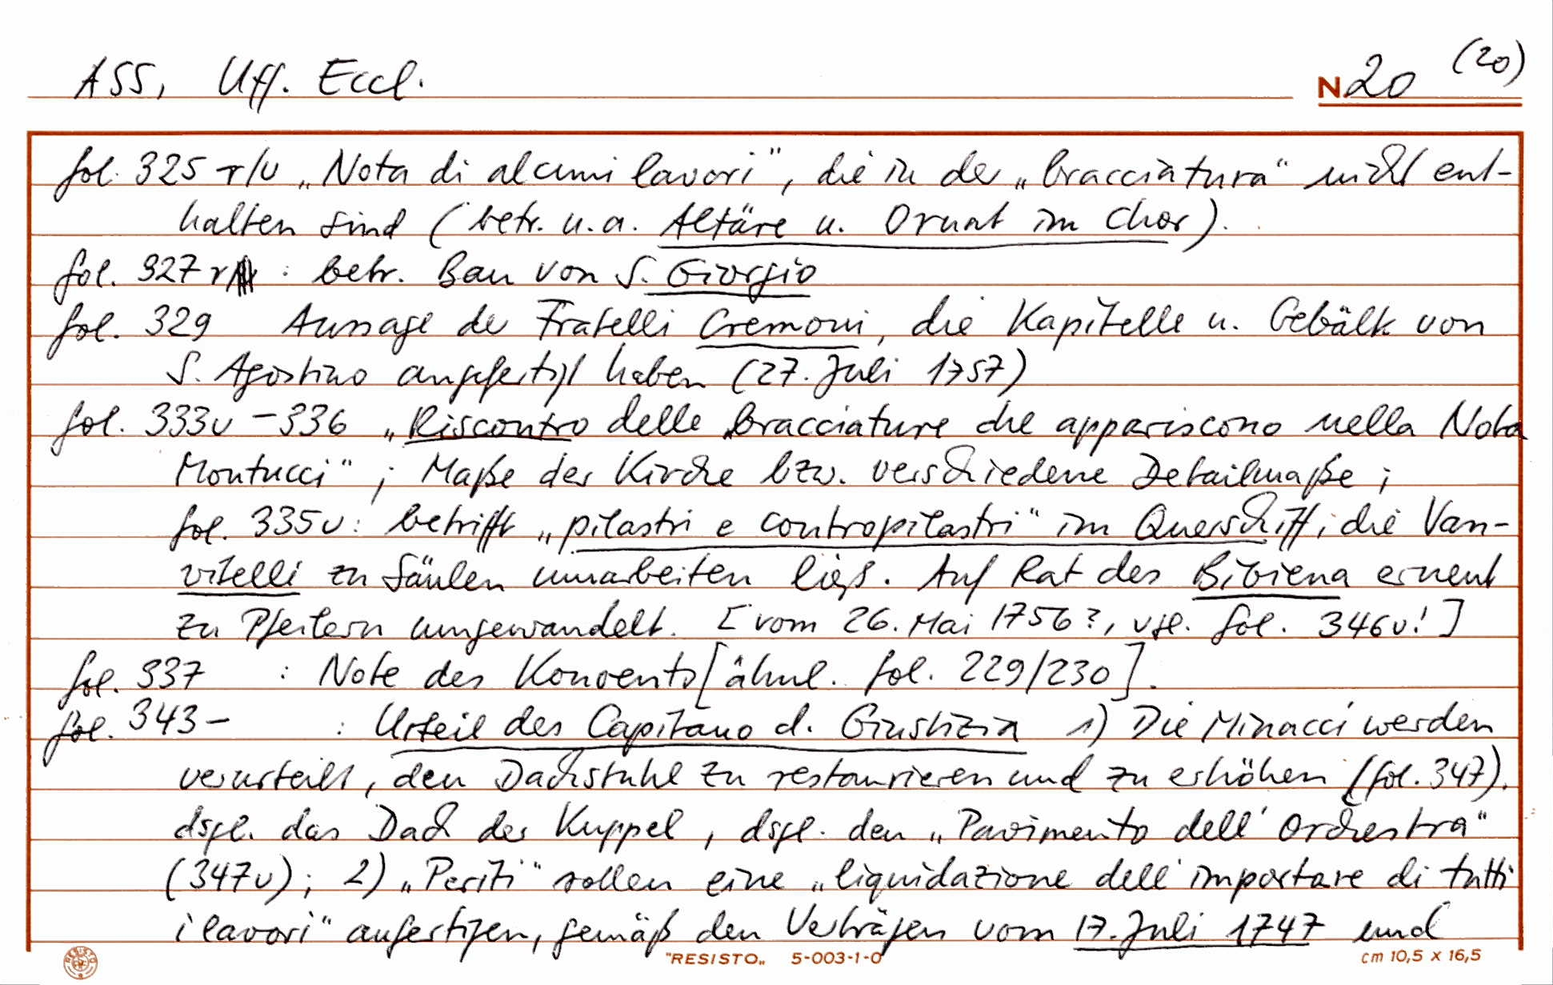 ASS, Uff. Eccl.
N. 20 (20)
fol. 325 r/v „Nota di alcuni lavori", die in der „bracciatura" nicht ent-
halten sind (betr. u.a. Altäre u. Ornat im Chor).
fol. 327 r : betr. Bau von S. Giorgio
fol. 329 Aussage der Fratelli Cremoni, die Kapitelle u. Gebälk von
S. Agostino angefertigt haben (27. Juli 1757)
fol. 333v - 336 „Riscontro delle bracciature che appariscono nella Nota
Montucci" ; Maße der Kirche bzw. verschiedene Detailmaße ;
fol. 335v : betrifft „pilastri e contropilastri" im Querschiff, die Van-
vitelli zu Säulen umarbeiten ließ. Auf Rat des Bibiena erneut
zu Pfeilern umgewandelt. [vom 26. Mai 1756?, vgl. fol. 346v!]
fol. 337 : Note des Konvents [ähnl. fol. 229/230].
fol. 343- : Urteil des Capitano d. Giustizia 1) Die Minacci werden
verurteilt, den Dachstuhl zu restaurieren und zu erhöhen (fol. 347).
dsgl. das Dach der Kuppel, dsgl. den „Pavimento dell' Orchestra"
(347v); 2) „Periti" sollen eine „liquidazione dell' importare di tutti
i lavori" anfertigen, gemäß den Verträgen vom 17. Juli 1747 und
RESISTO
"RESISTO„ 5-003-1-0
cm 10,5 x 16,5